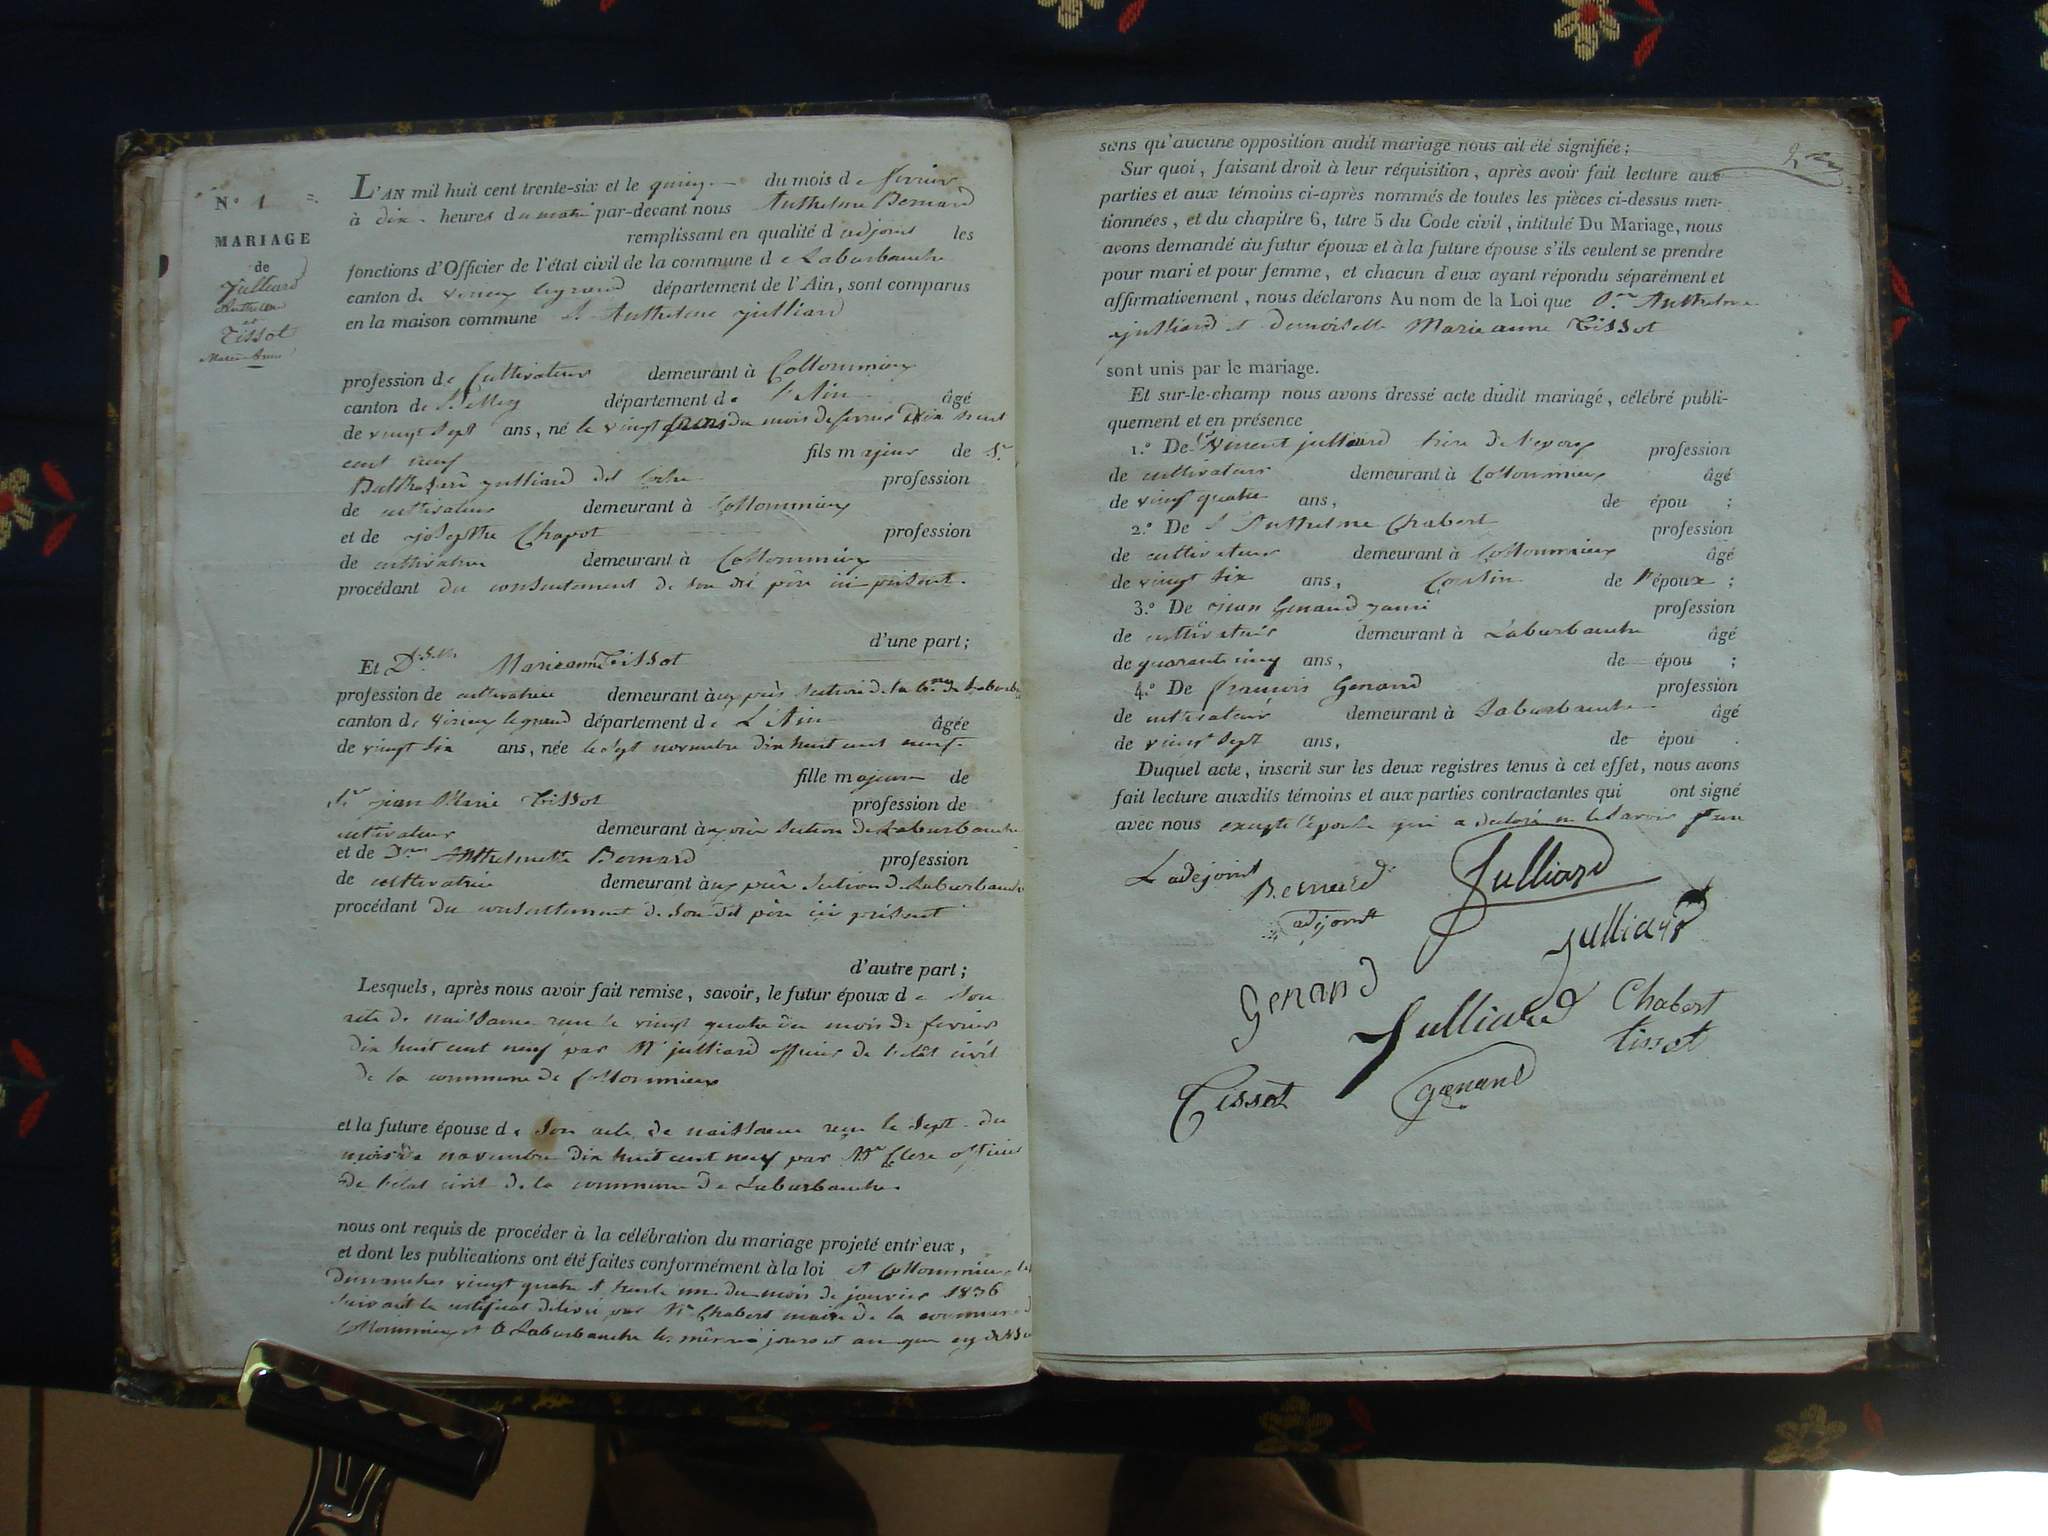 N.° 1
MARIAGE
de
Julliard
Anthelme
et
Tissot
Marie Anne
L'AN mil huit cent trente-six et le quinze du mois de fevrier
à dix heures du matin par-devant nous Anthelme Bernard
remplissant en qualité d'adjoint les
fonctions d'Officier de l'état civil de la commune de Laburbanche
canton de virieu legrand département de l'Ain, sont comparus
en la maison commune S.r Anthelme julliard
profession de Cultivateur demeurant à Collommieux
canton de département de l'Ain âgé
de vingt sept ans, né le vingt du mois de fevrier Dix huit
cent neuf fils majeur de S.r
Balthazard julliard dit profession
de cultivateur demeurant à Collommieux
et de josephte Chapot profession
de cultivatrice demeurant à Collommieux
procédant du consentement de son dit père ici présent.
d'une part;
Et D.lle Marieanne Tissot
profession de cultivatrice demeurant à section de la c.ne de Laburba
canton de Virieu legrand département de L'Ain âgée
de vingt six ans, née le sept novembre dix huit cent neuf.
fille majeure de
S.r jean Marie Tissot profession de
cultivateur demeurant à section de Laburbanche
et de D.me Anthelmette Bernard profession
de cultivatrice demeurant à section de Laburbanche
procédant du consentement de son dit père ici présent
d'autre part;
Lesquels, après nous avoir fait remise, savoir, le futur époux de son
acte de naissance reçu le vingt quatre du mois de fevrier
dix huit cent neuf par M.r julliard officier de l'etât civil
de la commune de Collommieux
et la future épouse de son acte de naissance reçu le sept du
mois de novembre dix huit cent neuf par M.r Clerc officier
de l'etat civil de la commune de Laburbanche.
nous ont requis de procéder à la célébration du mariage projeté entr'eux,
et dont les publications ont été faites conformément à la loi et Collommieux les
dimanches vingt quatre et trente un du mois de janvier 1836
suivant le certificat délivré par M.r Chabert maire de la commune d
Collommieux et à Laburbanche les mêmes jours et an que cy dessu
sans qu'aucune opposition audit mariage nous ait été signifiée;
Sur quoi, faisant droit à leur réquisition, après avoir fait lecture aux
parties et aux témoins ci-après nommés de toutes les pièces ci-dessus men-
tionnées, et du chapitre 6, titre 5 du Code civil, intitulé Du Mariage, nous
avons demandé au futur époux et à la future épouse s'ils veulent se prendre
pour mari et pour femme, et chacun d'eux ayant répondu séparément et
affirmativement, nous déclarons Au nom de la Loi que S.r Anthelme
julliard et demoiselle Marieanne Tissot
sont unis par le mariage.
Et sur-le-champ nous avons dressé acte dudit mariage, célébré publi-
quement et en présence
1.° De Vincent julliard frère de l'epoux profession
de cultivateur demeurant à Collommieux âgé
de vingt quatre ans, de épou ;
2.° De S.r Anthelme Chabert profession
de cultivateur demeurant à Collommieux âgé
de vingt six ans, Cousin de l'époux ;
3.° De jean Genand profession
de cultivateur demeurant à Laburbanche âgé
de quarante cinq ans, de épou ;
4.° De françois Genand profession
de cultivateur demeurant à Laburbanche âgé
de vingt sept ans, de épou .
Duquel acte, inscrit sur les deux registres tenus à cet effet, nous avons
fait lecture auxdits témoins et aux parties contractantes qui ont signé
avec nous excepté l'épouse qui a declaré ne le savoir faire
L'adejoint Bernard Julliard
adjoint
julliard
Genand Julliard Chabert
tissot
Tissot genand